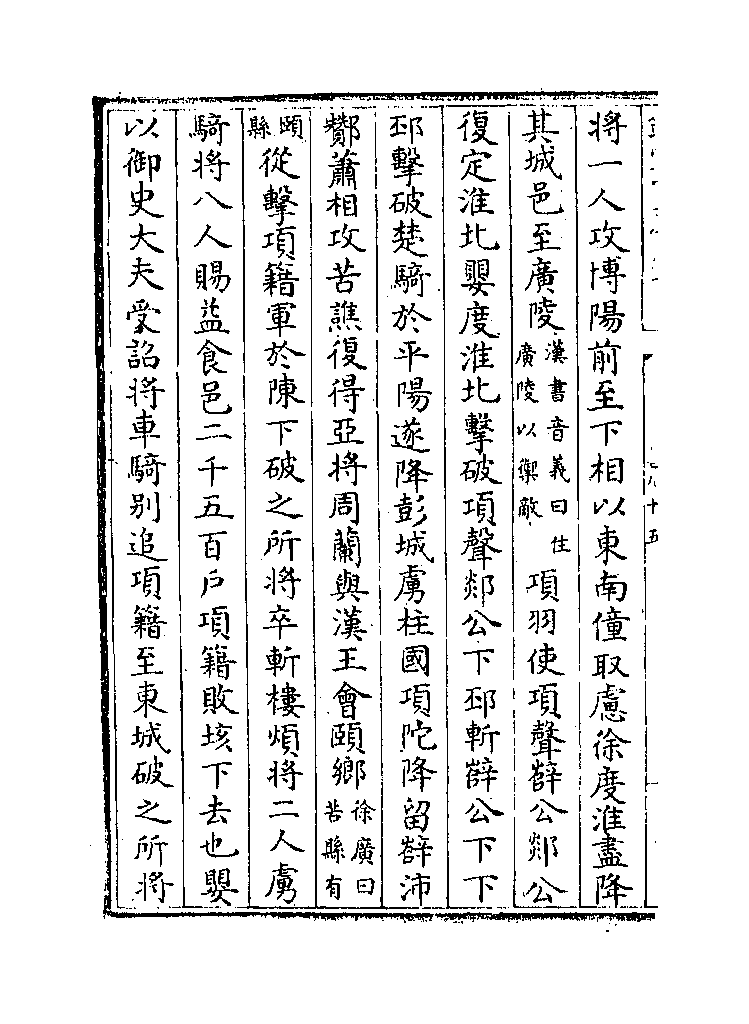 將一人攻博陽前至下相以東南僮取慮徐度淮盡降
其城邑至廣陵漢書音義曰住廣陵以禦敵項羽使項聲薛公郯公
復定淮北嬰度淮北擊破項聲郯公下邳斬薛公下下
邳擊破楚騎於平陽遂降彭城虜柱國項陀降留薛沛
酇蕭相攻苦譙復得亞將周蘭與漢王會頤鄉徐廣曰苦縣有
頤縣從擊項籍軍於陳下破之所將卒斬樓煩將二人虜
騎將八人賜益食邑二千五百戶項籍敗垓下去也嬰
以御史大夫受詔將車騎別追項籍至東城破之所將